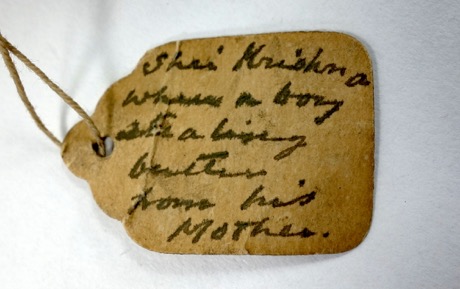 Shri Krishna
when a boy
stealing
butter
from his
Mother.